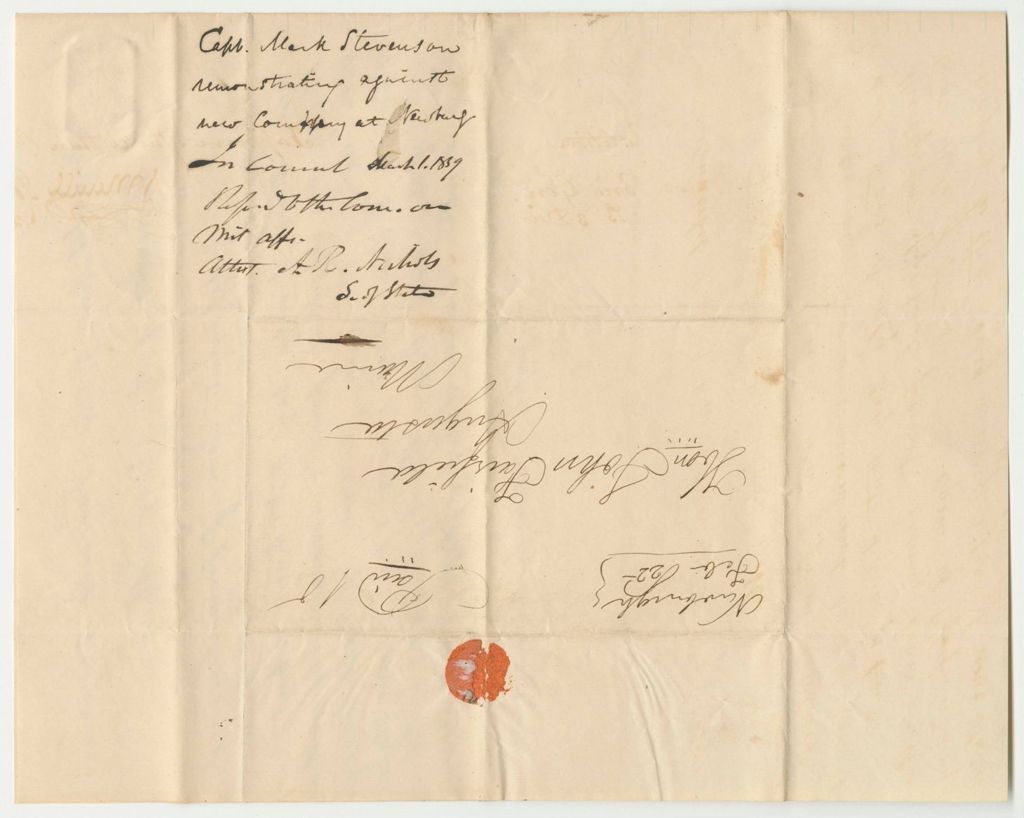 Capt. Mark Stevenson
remonstrating against
new Company at Newburg
In Council March 1. 1839
Refd to the Com. on
Mil affs.
Attest. A. R. Nichols
Sec of State
Newburgh
Feb. 22
Paid 18
Hon. John Fairfield
Augusta
Maine